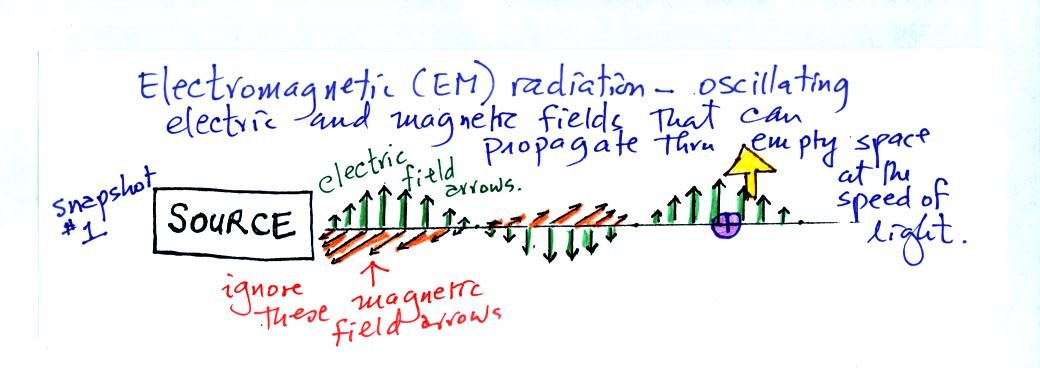 Electromagnetic (EM) radiation - oscillating
electric and magnetic fields that can
propagate thru empty space
at the
speed of
light.
snapshot
#1
SOURCE
electric
field
arrows.
+
ignore
these magnetic
field arrows